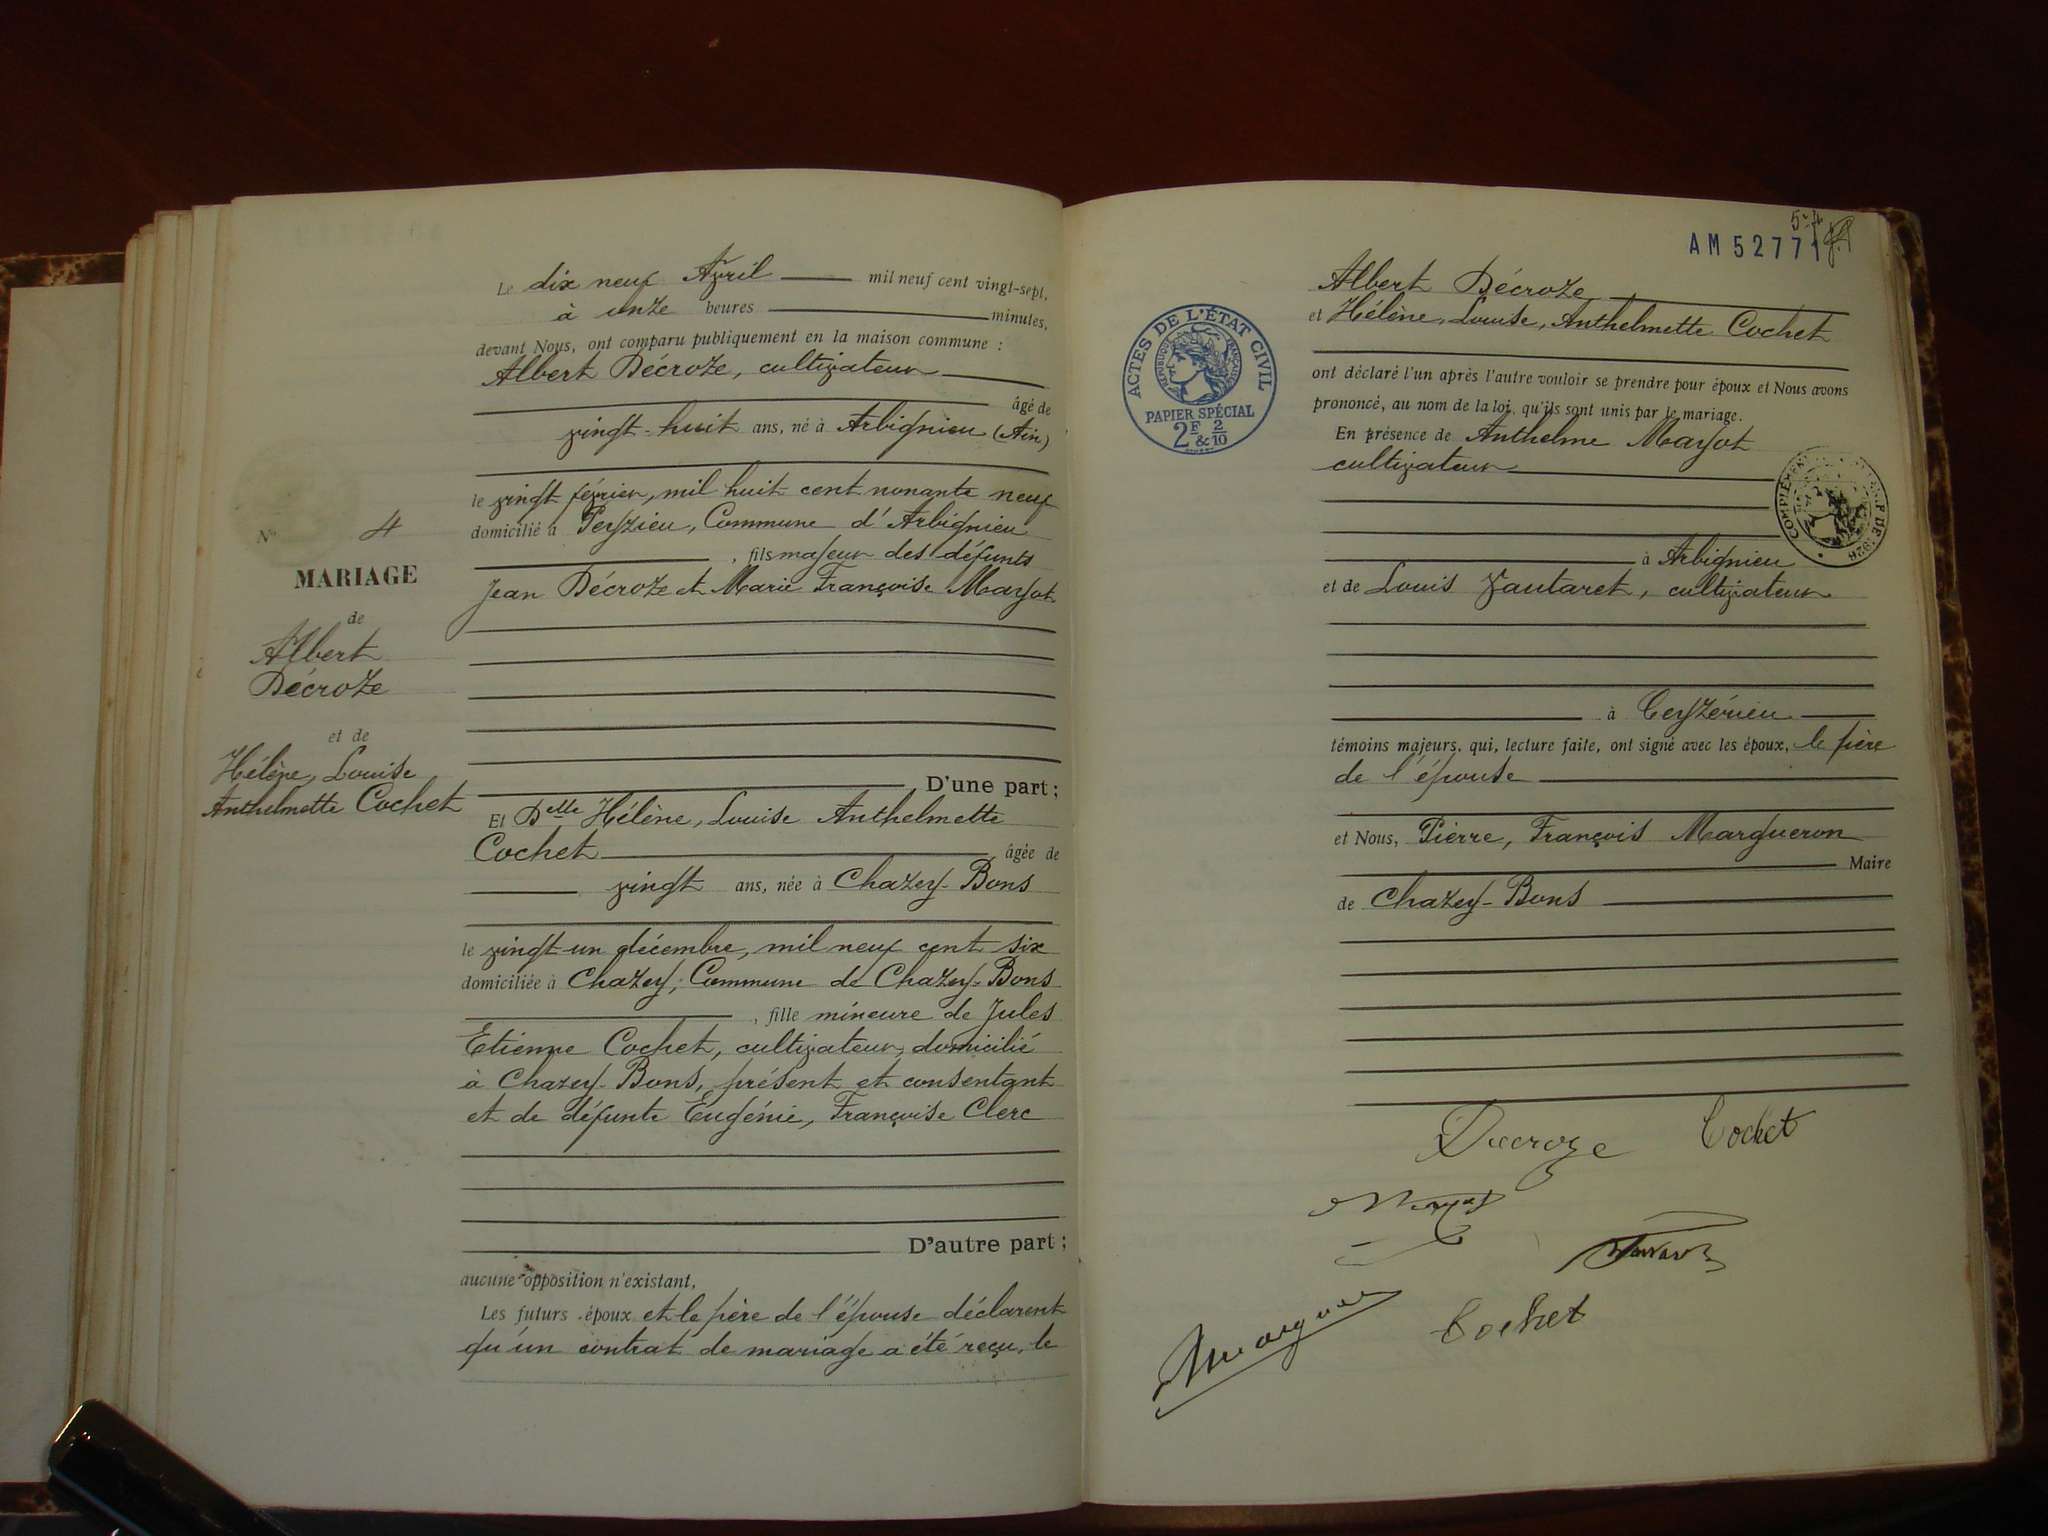 Le dix neuf Avril mil neuf cent vingt-sept,
à onze heures minutes,
devant Nous, ont comparu publiquement en la maison commune :
Albert Décroze, cultivateur
âgé de
vingt-huit ans, né à Arbignieu (Ain)
le vingt février, mil huit cent nonante neuf
domicilié à Peyzieu, Commune d'Arbignieu
, fils majeur des défunts
Jean Décroze et Marie Françoise Mayot
D'une part ;
Et Delle Hélène, Louise Anthelmette
Cochet âgée de
vingt ans, née à Chazey-Bons
le vingt-un décembre, mil neuf cent six
domiciliée à Chazey, Commune de Chazey-Bons
, fille mineure de Jules
Etienne Cochet, cultivateur, domicilié
à Chazey-Bons, présent et consentant
et de défunte Eugénie, Françoise Clerc
D'autre part ;
aucune opposition n'existant,
Les futurs époux et le père de l'épouse déclarent
qu'un contrat de mariage a été reçu, le
N° 4
MARIAGE
de
Albert
Décroze
et de
Hélène, Louise
Anthelmette Cochet
AM 52771
ACTES DE L'ÉTAT CIVIL
RÉPUBLIQUE FRANÇAISE
PAPIER SPÉCIAL
2F & 2/10
Albert Décroze
et Hélène, Louise, Anthelmette Cochet
ont déclaré l'un après l'autre vouloir se prendre pour époux et Nous avons
prononcé, au nom de la loi, qu'ils sont unis par le mariage.
En présence de Anthelme Mayot
cultivateur
à Arbignieu
et de Louis Vautaret, cultivateur
à Ceyzérieu
témoins majeurs, qui, lecture faite, ont signé avec les époux, le père
de l'épouse
et Nous, Pierre, François Margueron
Maire
de Chazey-Bons
Decroze Cochet
Cochet